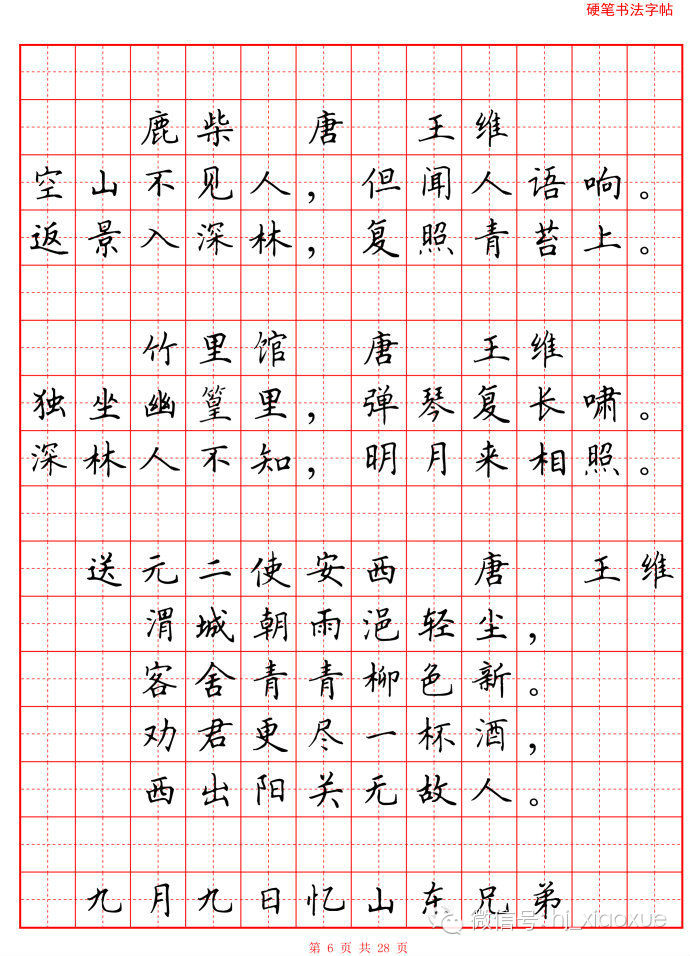 硬笔书法字帖
鹿柴 唐 王维
空山不见人，但闻人语响。
返景入深林，复照青苔上。
竹里馆 唐 王维
独坐幽篁里，弹琴复长啸。
深林人不知，明月来相照。
送元二使安西 唐 王维
渭城朝雨浥轻尘，
客舍青青柳色新。
劝君更尽一杯酒，
西出阳关无故人。
九月九日忆山东兄弟
微信号: hj_xiaoxue
第 6 页 共 28 页